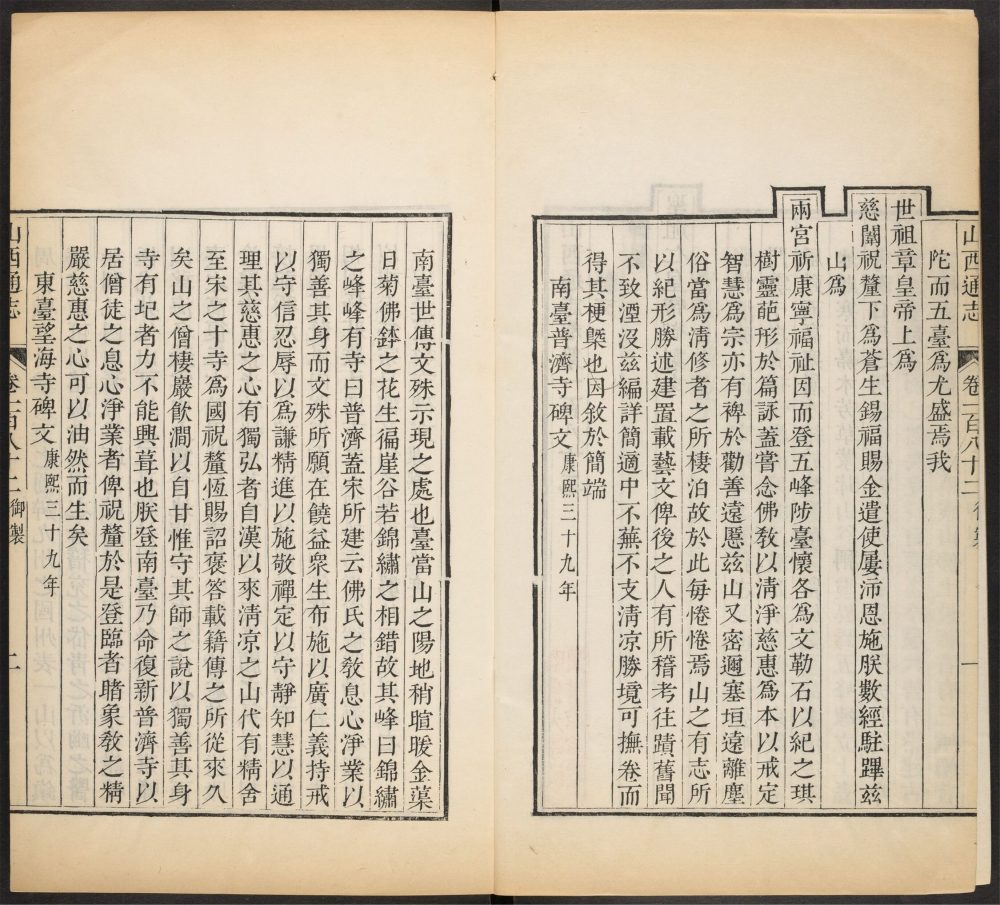 山西通志 卷一百八十二
陀而五臺爲尤盛焉我
世祖章皇帝上爲
慈闈祝釐下爲蒼生錫福賜金遣使屢沛恩施朕數經駐蹕茲
山爲
兩宮祈康寧福祉因而登五峰陟臺懷各爲文勒石以紀之琪
樹靈葩形於篇詠蓋嘗念佛敎以淸淨慈惠爲本以戒定
智慧爲宗亦有裨於勸善遠慝兹山又密邇塞垣遠離塵
俗當爲淸修者之所棲泊故於此每惓惓焉山之有志所
以紀形勝述建置載藝文俾後之人有所稽考往蹟舊聞
不致湮沒兹編詳簡適中不蕪不支淸凉勝境可撫卷而
得其梗槩也因敘於簡端
南臺普濟寺碑文康熙三十九年
南臺世傳文殊示現之處也臺當山之陽地稍暄暖金蕖
日菊佛鉢之花生徧崖谷若錦繡之相錯故其峰曰錦繡
之峰峰有寺曰普濟蓋宋所建云佛氏之敎息心淨業以
獨善其身而文殊所願在饒益衆生布施以廣仁義持戒
以守信忍辱以爲謙精進以施敬禪定以守靜知慧以通
理其慈惠之心有獨弘者自漢以來淸凉之山代有精舍
至宋之十寺爲國祝釐恆賜詔褒答載籍傳之所從來久
矣山之僧棲巖飮澗以自甘惟守其師之說以獨善其身
寺有圮者力不能興葺也朕登南臺乃命復新普濟寺以
居僧徒之息心淨業者俾祝釐於是登臨者睹象敎之精
嚴慈惠之心可以油然而生矣
東臺望海寺碑文康熙三十九年
山西通志 卷一百八十二御製 二